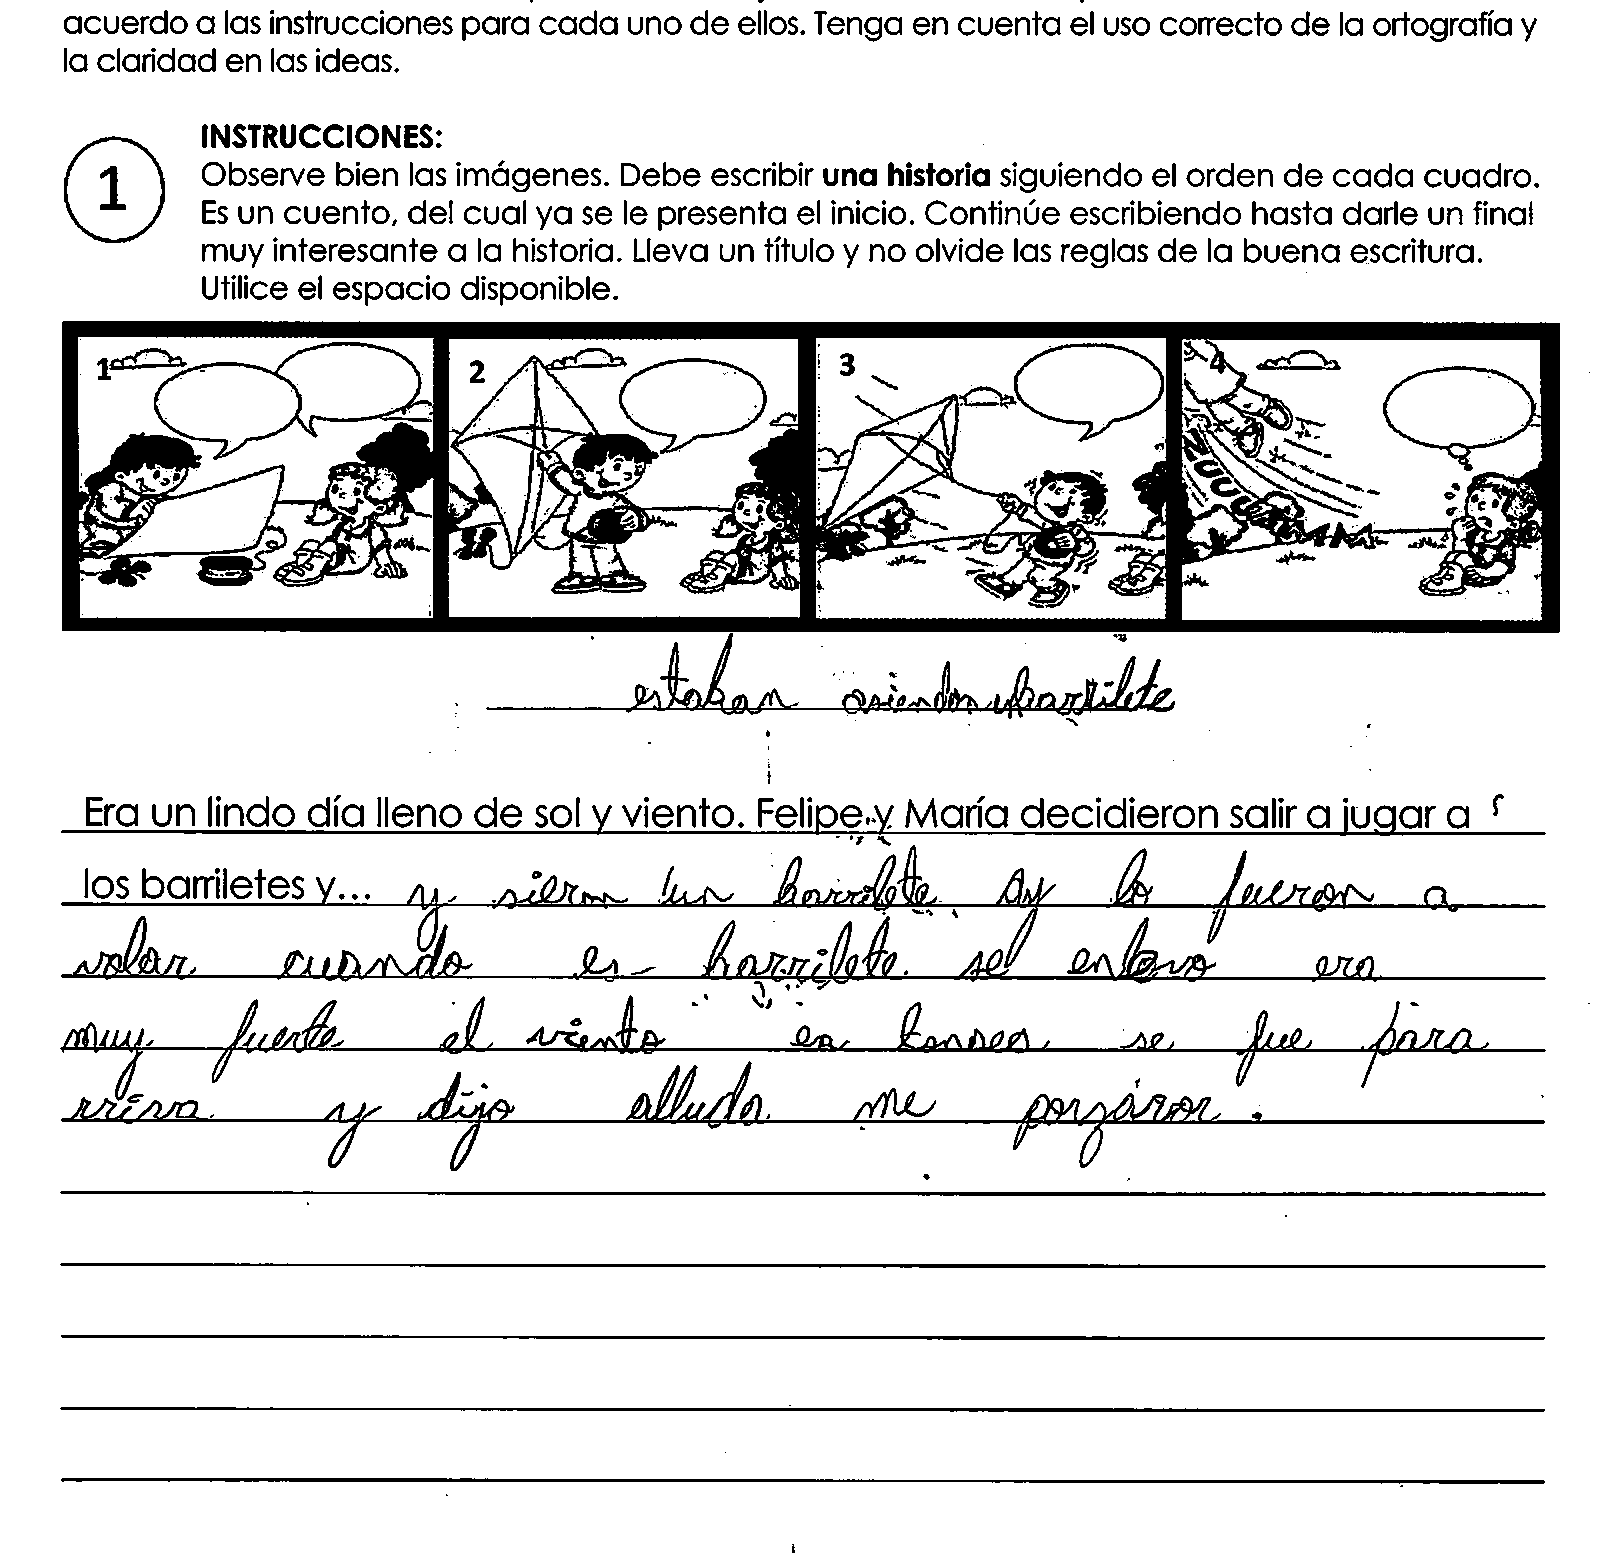 acuerdo a las instrucciones para cada uno de ellos. Tenga en cuenta el uso correcto de la ortografía y
la claridad en las ideas.
1
INSTRUCCIONES:
Observe bien las imágenes. Debe escribir una historia siguiendo el orden de cada cuadro.
Es un cuento, del cual ya se le presenta el inicio. Continúe escribiendo hasta darle un final
muy interesante a la historia. Lleva un título y no olvide las reglas de la buena escritura.
Utilice el espacio disponible.
1 2 3 4
ZUUUMMM
estaban asiendo barrilete
Era un lindo día lleno de sol y viento. Felipe y María decidieron salir a jugar a
los barriletes y... y sieron un barrilete y lo fueron a
volar cuando es barrilete se enlevo era
muy fuerte el viento en tonses se fue para
rriva y dijo alluda me porfavor.